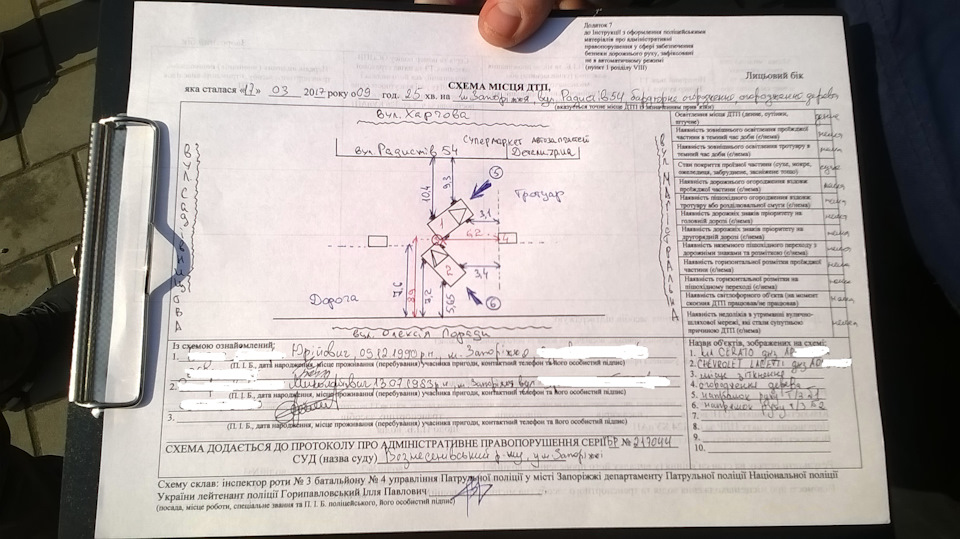 Додаток 7
до Інструкції з оформлення поліцейськими
матеріалів про адміністративні
правопорушення у сфері забезпечення
безпеки дорожнього руху, зафіксовані
не в автоматичному режимі
(пункт 1 розділу VIII)
Лицьовий бік
СХЕМА МІСЦЯ ДТП,
яка сталася «17» 03 2017 року о 09 год. 25 хв. на м. Запоріжжя, вул. Радистів 54 бардюрне огородження, огородження дерева
(вказується точне місце ДТП із зазначенням прив'язки)
вул. Харчова
Супермаркет автозапчастей
вул. Радистів 54
вул. Садівництва
вул. Магістральна
10,4
9,3
5
Тротуар
1
3,1
4,2
4
3
2
3,4
7,6
8,9
7,2
5,65
6
Дорога
вул. Олексія Поради
Освітлення місця ДТП (денне, сутінки, штучне) денне
Наявність зовнішнього освітлення проїжджої частини в темний час доби (є/нема) нема
Наявність зовнішнього освітлення тротуару в темний час доби (є/нема) нема
Стан покриття проїзної частини (сухе, мокре, ожеледиця, забруднене, засніжене тощо) сухе
Наявність дорожнього огородження вздовж проїжджої частини (є/нема) нема
Наявність пішохідного огородження вздовж тротуару або розділювальної смуги (є/нема) нема
Наявність дорожніх знаків пріоритету на головній дорозі (є/нема) нема
Наявність дорожніх знаків пріоритету на другорядній дорозі (є/нема) нема
Наявність наземного пішохідного переходу з дорожніми знаками та розміткою (є/нема) нема
Наявність горизонтальної розмітки проїжджої частини (є/нема) нема
Наявність горизонтальної розмітки на пішохідному переході (є/нема) нема
Наявність світлофорного об'єкта (на момент скоєння ДТП працював/не працював) нема
Наявність недоліків в утриманні вулично-шляхової мережі, які стали супутньою причиною ДТП (є/нема) нема
Із схемою ознайомлені:
1. Юрійович, 09.12.1990 р.н., м. Запоріжжя
(П. І. Б., дата народження, місце проживання (перебування) учасника пригоди, контактний телефон та його особистий підпис)
2. Миколайович 13.07.1983 р.н., м. Запоріжжя вул
(П. І. Б., дата народження, місце проживання (перебування) учасника пригоди, контактний телефон та його особистий підпис)
3.
(П. І. Б., дата народження, місце проживання (перебування) учасника пригоди, контактний телефон та його особистий підпис)
Назви об'єктів, зображених на схемі:
1. КІА CERATO днз АР
2. CHEVROLET LACETTI днз АО
3. місце зіткнення
4. огородження дерева
5. напрямок руху т/з 1
6. напрямок руху т/з 2
7.
8.
9.
10.
СХЕМА ДОДАЄТЬСЯ ДО ПРОТОКОЛУ ПРО АДМІНІСТРАТИВНЕ ПРАВОПОРУШЕННЯ СЕРІЇ БР № 217044
СУД (назва суду) Вознесенівський р-ну, м. Запоріжжі
Схему склав: інспектор роти № 3 батальйону № 4 управління Патрульної поліції у місті Запоріжжі департаменту Патрульної поліції Національної поліції
України лейтенант поліції Горипавловський Ілля Павлович
(посада, місце роботи, спеціальне звання та П. І. Б. поліцейського, його особистий підпис)